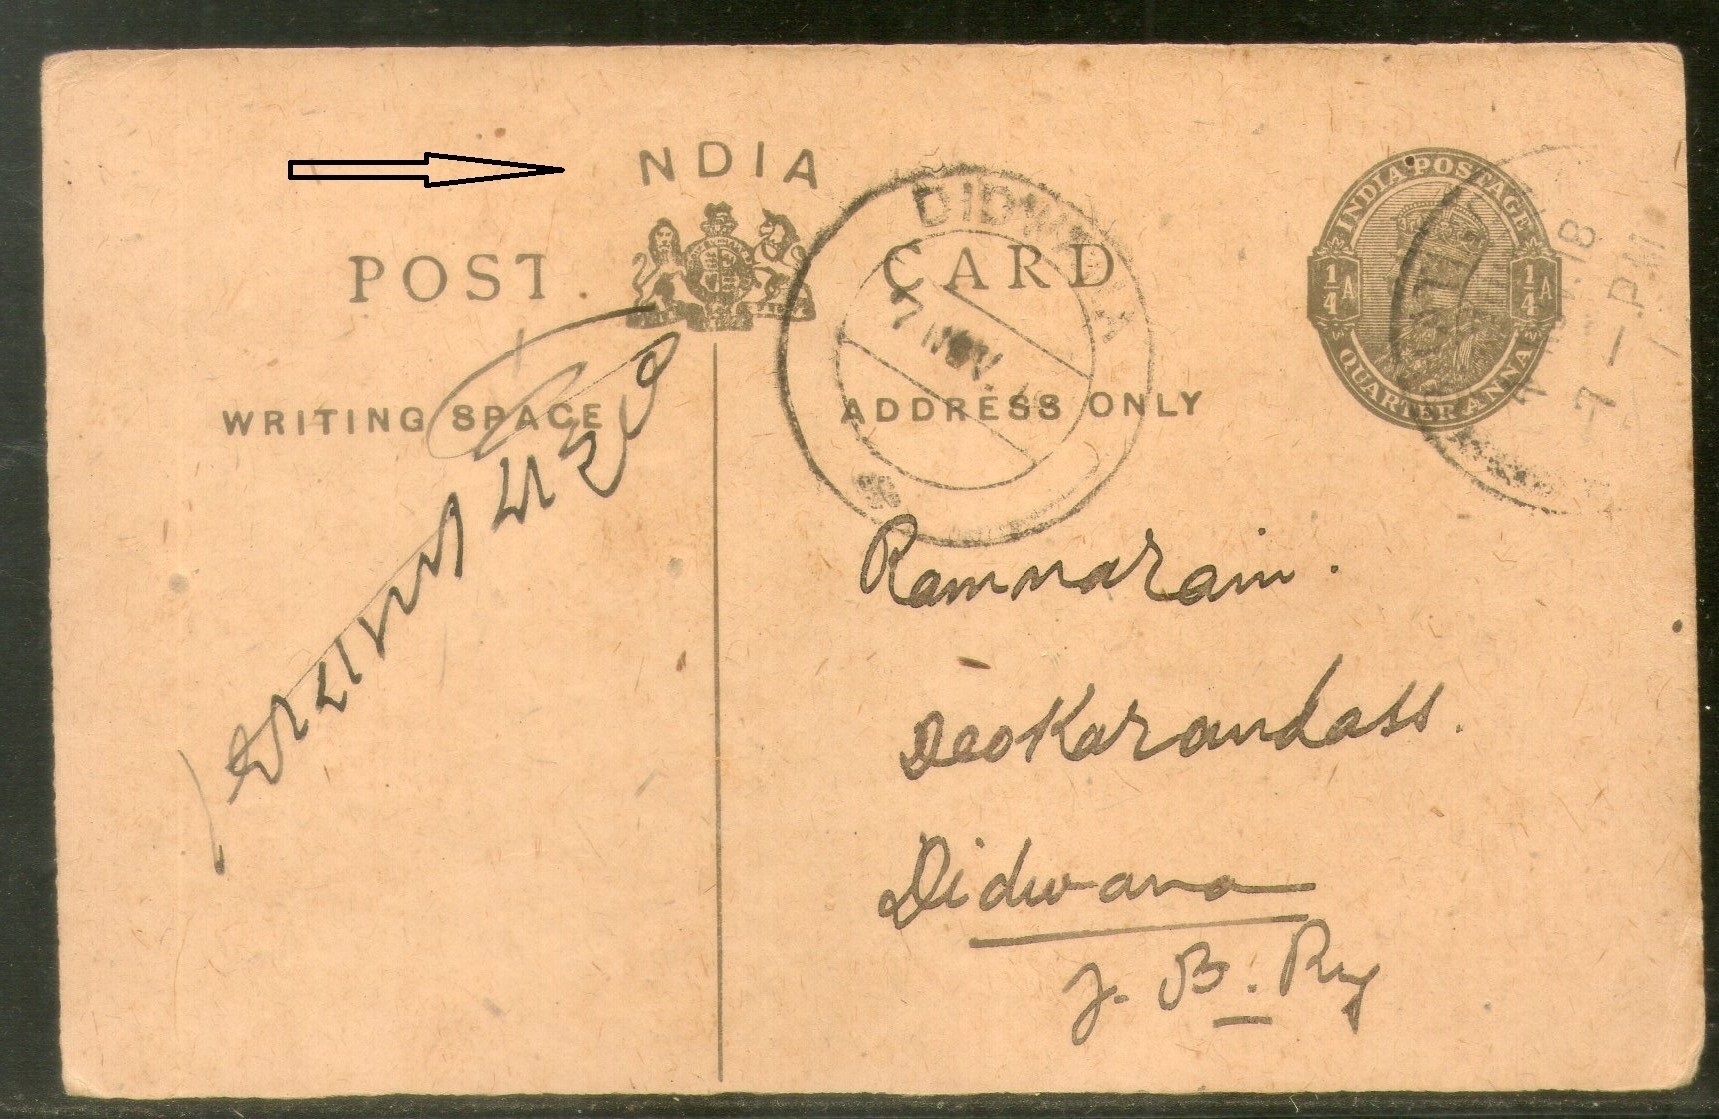 NDIA
POST CARD
WRITING SPACE
ADDRESS ONLY
DIDWANA
7 NOV. 18
INDIA POSTAGE
1/4 A
1/4 A
QUARTER ANNA
18
7-PM
Ramnarain.
Deokarandass.
Didwana
J. B. Ry